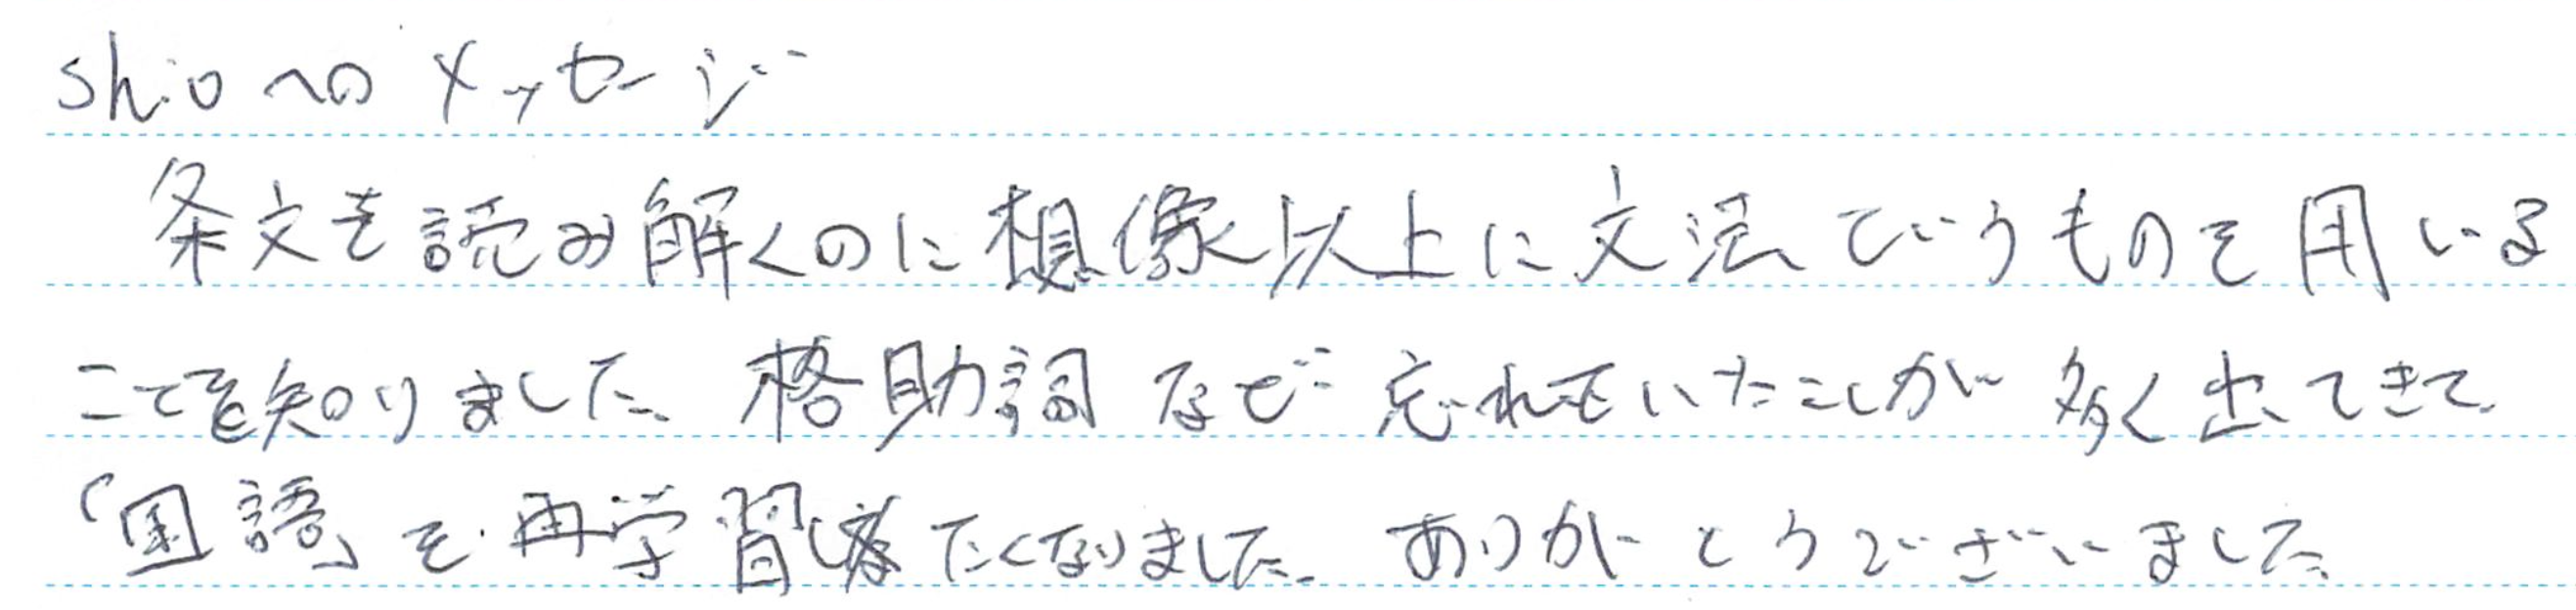 shioへのメッセージ
条文を読み解くのに想像以上に文法というものを用いる
ことを知りました。格助詞など忘れていたことが多く出てきて、
「国語」を再学習したくなりました。ありがとうございました。